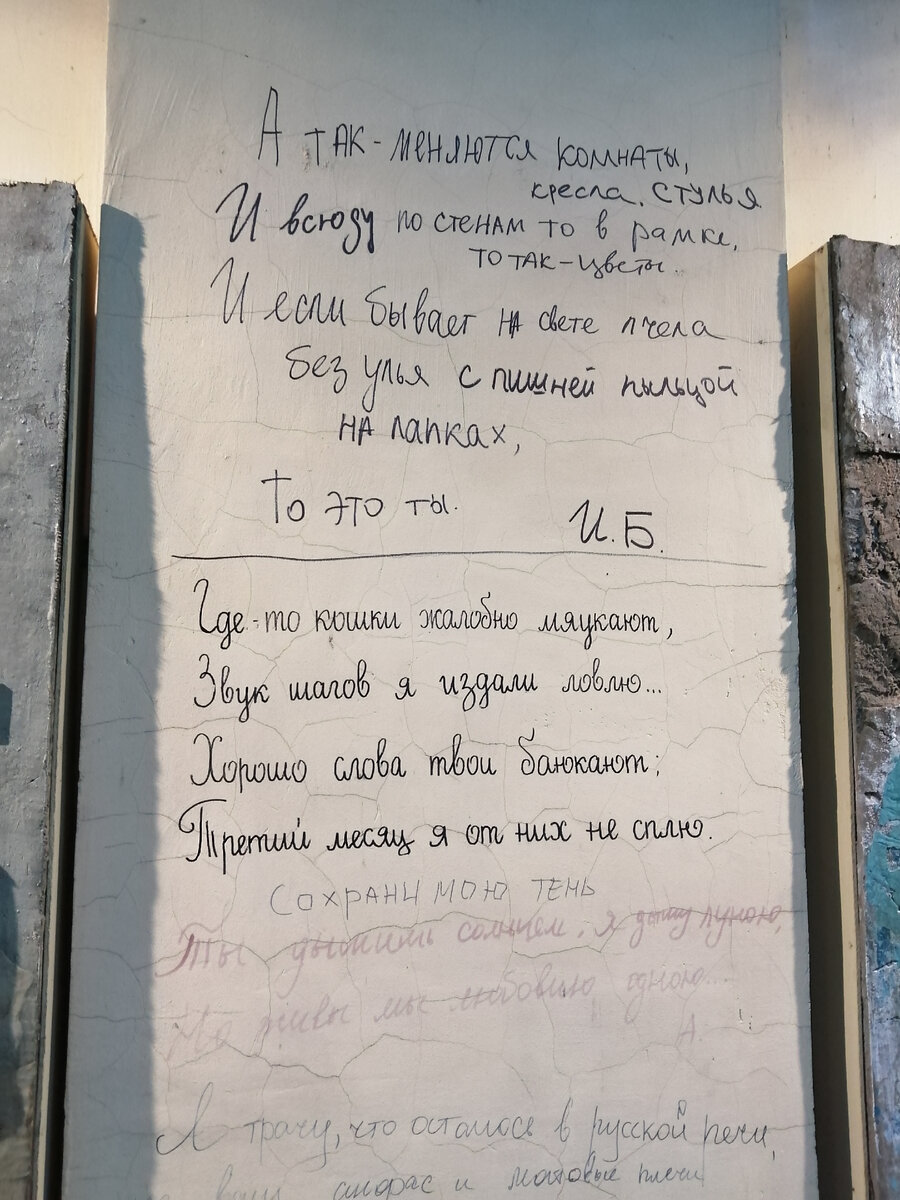 А ТАК-МЕНЯЮТСЯ КОМНАТЫ,
кресла, СТУЛЬЯ
И всюду по стенам то в рамке,
то ТАК-цветы.
И если бывает НА свете пчела
без улья с лишней пыльцой
НА лапках,
То это ты.
И.Б.
Где-то кошки жалобно мяукают,
Звук шагов я издали ловлю...
Хорошо слова твои баюкают;
Третий месяц я от них не сплю.
СОХРАНИ МОЮ ТЕНЬ
Ты дышишь солнцем, я дышу луною,
Но живы мы любовию одною...
А.
Я трачу, что осталось в русской речи,
ваш анфас и матовые плечи